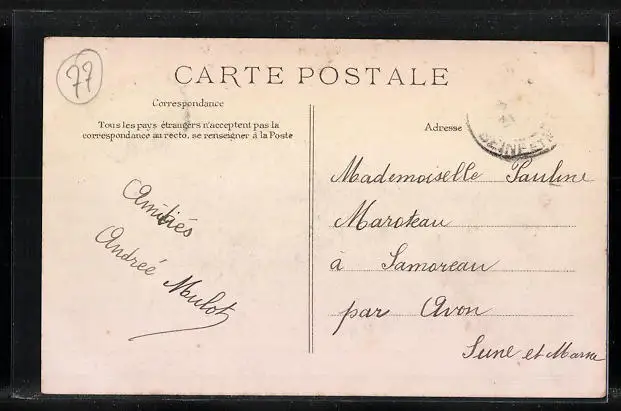 77
CARTE POSTALE
Correspondance
Tous les pays étrangers n'acceptent pas la
correspondance au recto, se renseigner à la Poste
Amitiés
Andreé Moulot
Adresse
Mademoiselle Pauline
Maroteau
à Samoreau
par Avon
Seine et Marne